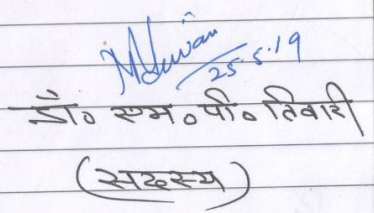 25.5.19
डॉ० एम० पी० तिवारी
(सदस्य)